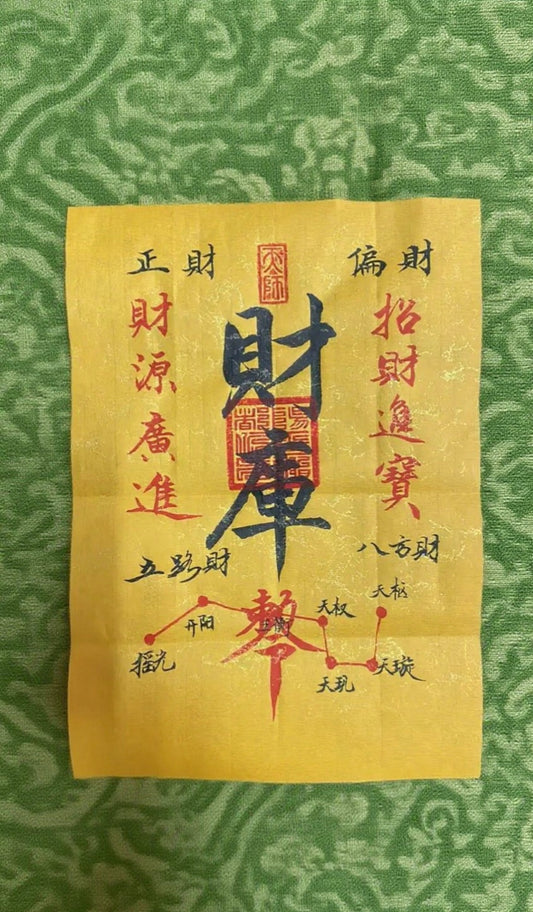 正財
天師
偏財
財源廣進
財庫
招財進寶
五路財
八方財
天枢
天权
开阳
玉衡
摇光
天玑
天璇